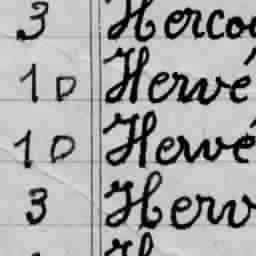 3 Herco
1D Hervé
1D Hervé
3 Herv